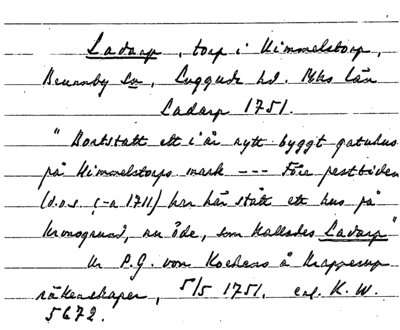 Ladarp, torp i Himmelstorp,
Brunnby sn, Luggude hd. Mhs län
Ladarp 1751.
"Bortstatt ett i år nytt byggt gatuhus
på Himmelstorps mark --- Före pesttiden
(d.o.s. c:a 1711) har här stått ett hus på
kronogrund, nu öde, som kallades Ladarp"
Ur P.G. von Kochens å Krapperup
räkenskaper, 5/5 1751. enl. K.W.
5672.